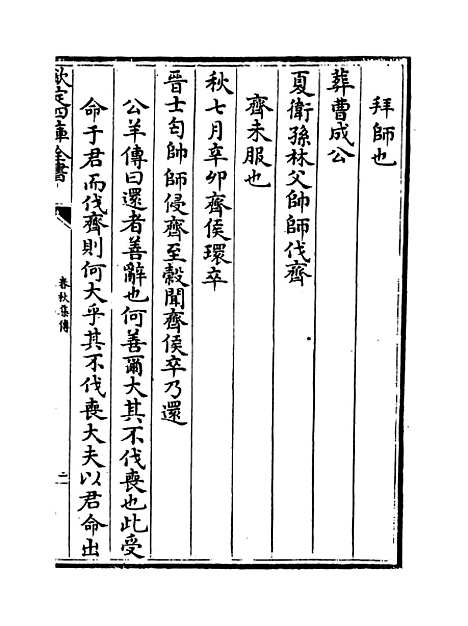 拜師也
葬曹成公
夏衛孫林父帥師伐齊
齊未服也
秋七月辛卯齊侯環卒
晉士匄帥師侵齊至穀聞齊侯卒乃還
公羊傳曰還者善辭也何善爾大其不伐喪也此受
命于君而伐齊則何大乎其不伐喪大夫以君命出
欽定四庫全書
春秋集傳
二